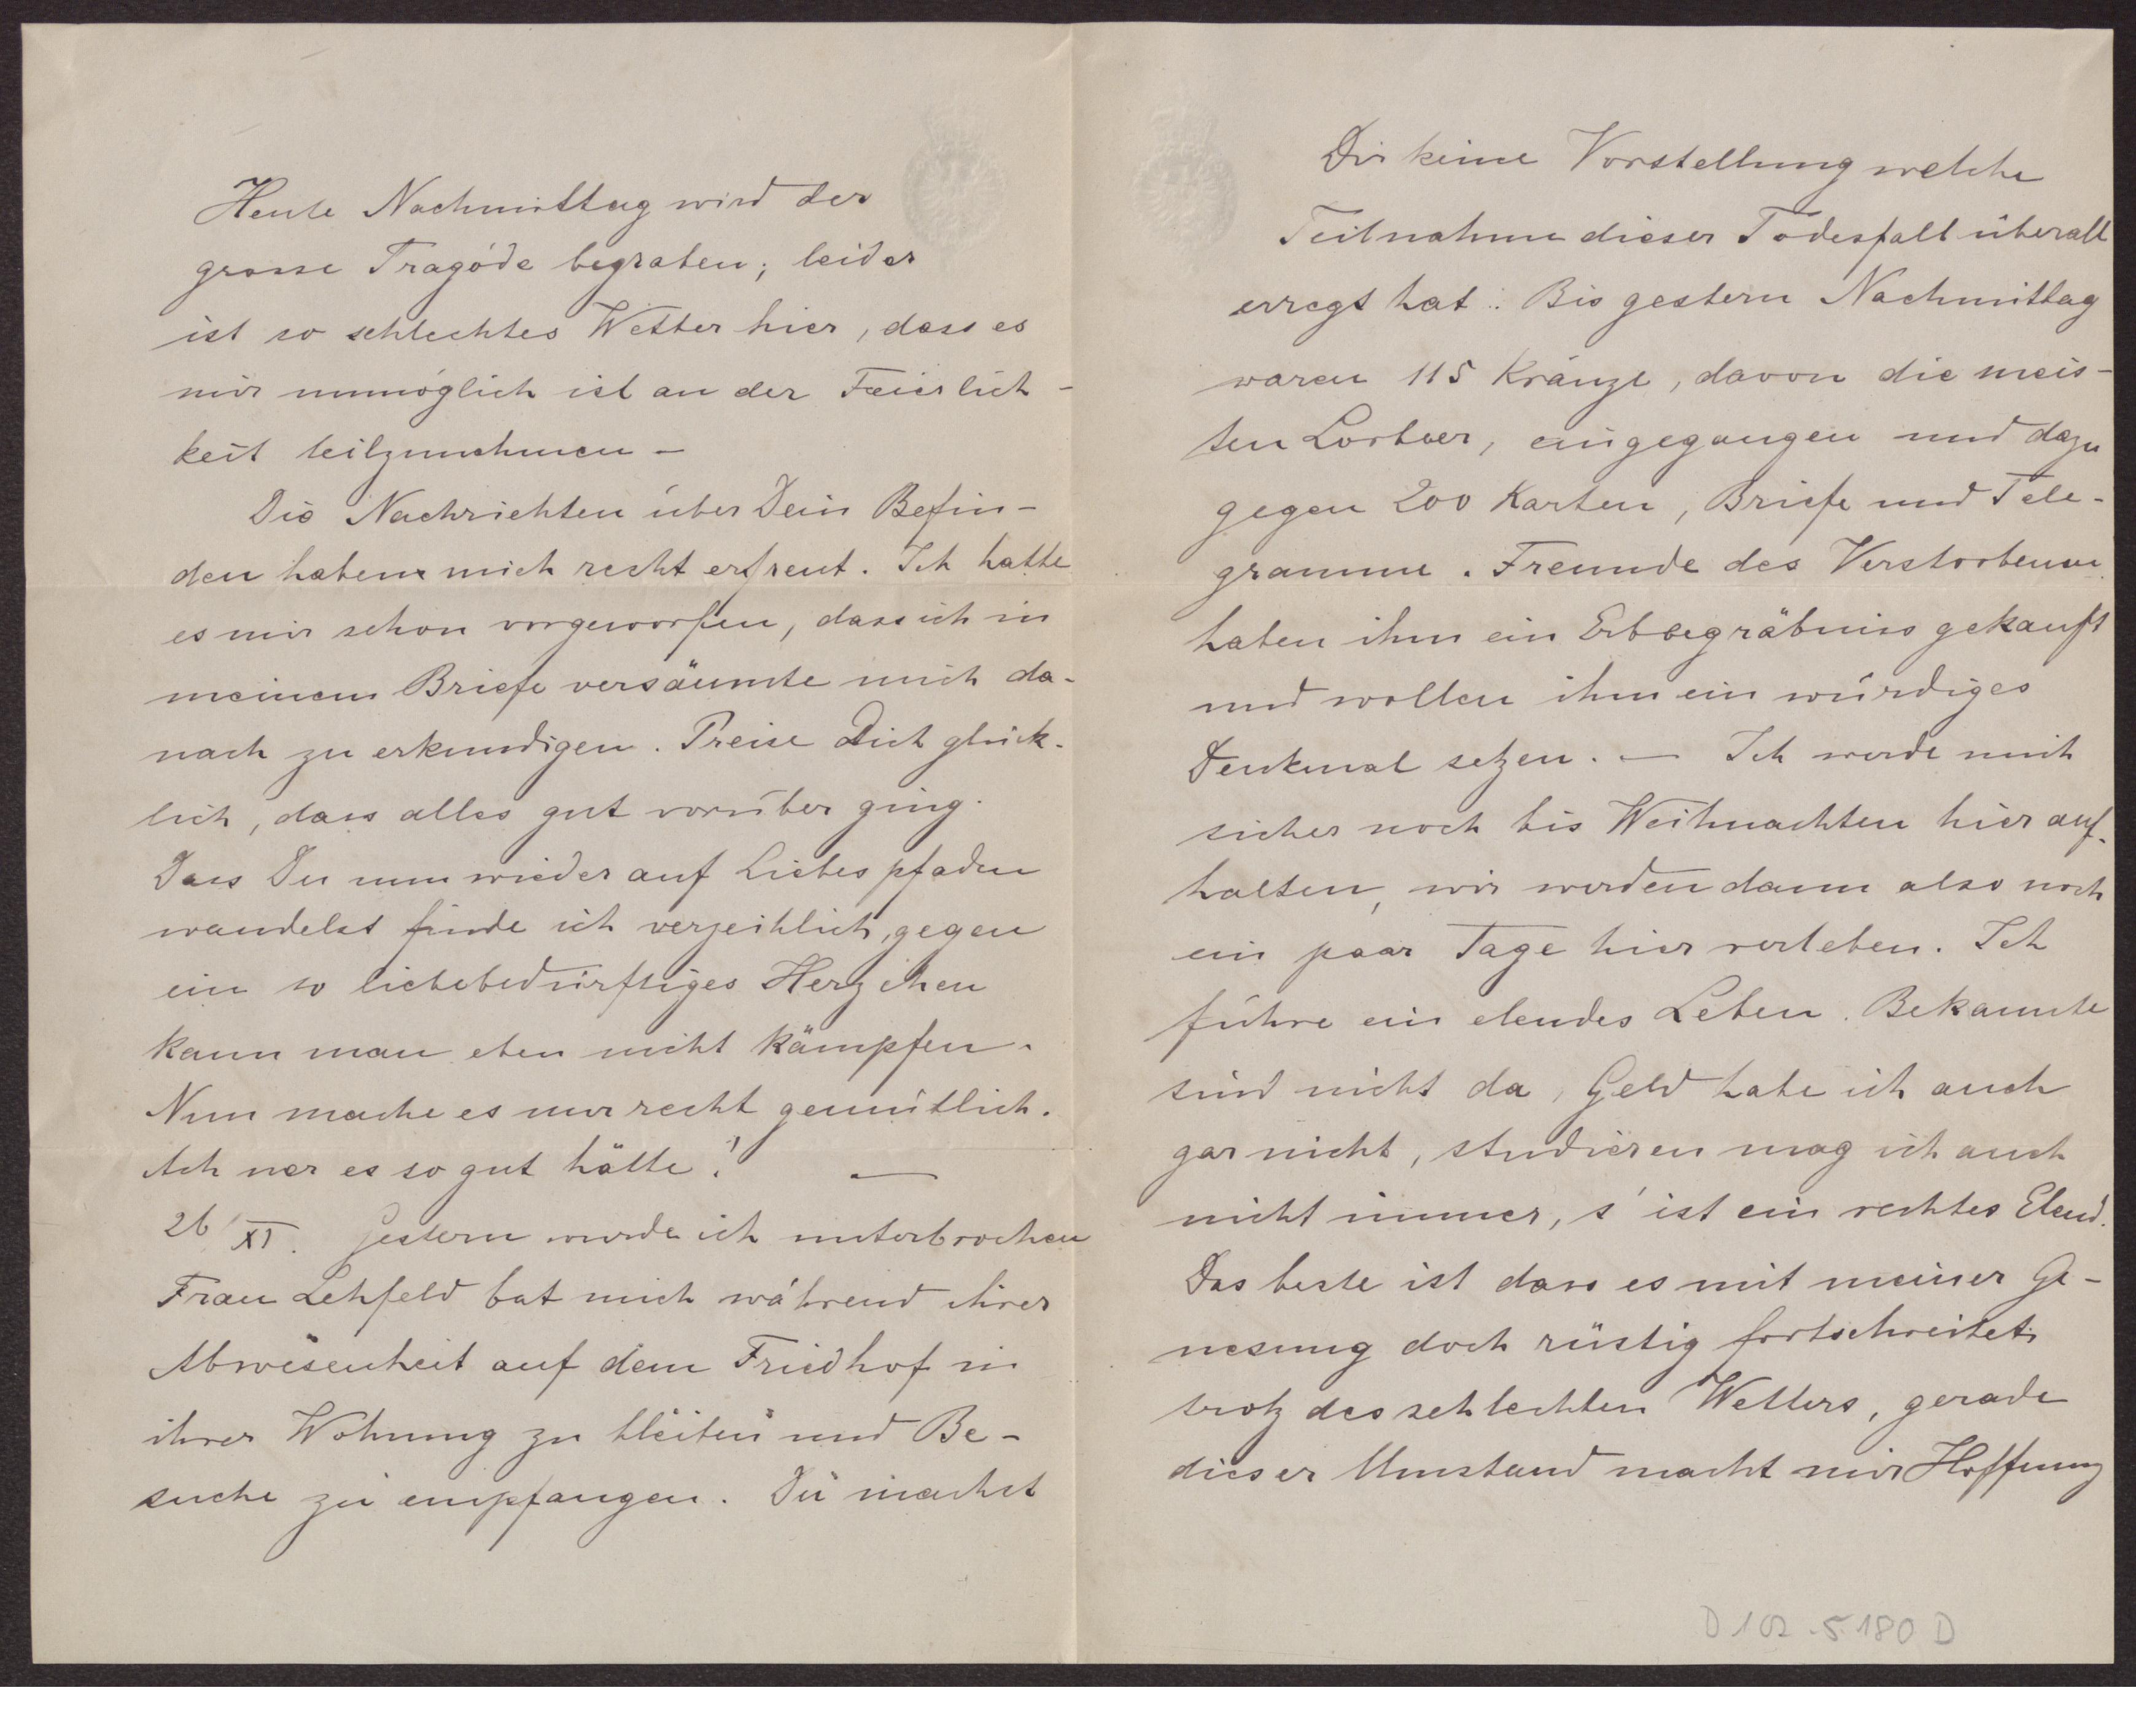 Heute Nachmittag wird der
grosse Tragöde begraben; leider
ist so schlechtes Wetter hier, dass es
mir unmöglich ist an der Feierlich-
keit teilzunehmen –
Die Nachrichten über Dein Befin-
den haben mich recht erfreut. Ich hatte
es mir schon vorgeworfen, dass ich in
meinem Briefe versäumte mich da-
nach zu erkundigen. Preise Dich glück-
lich, dass alles gut vorüber ging.
Dass Du nun wieder auf Liebespfaden
wandelst finde ich verzeihlich, gegen
ein so liebebedürftiges Herzchen
kann man eben nicht kämpfen.
Nun mache es nur recht gemütlich.
Ach wer es so gut hätte! —
26/XI. Gestern wurde ich unterbrochen
Frau Lehfeld bat mich während ihrer
Abwesenheit auf dem Friedhof in
ihrer Wohnung zu bleiben und Be-
suche zu empfangen. Du machst
Dir keine Vorstellung welche
Teilnahme dieser Todesfall überall
erregt hat: Bis gestern Nachmittag
waren 115 Kränze, davon die meis-
ten Lorbeer, eingegangen und dazu
gegen 200 Karten, Briefe und Tele-
gramme. Freunde des Verstorbenen
haben ihm ein Erbbegräbniss gekauft
und wollen ihm ein würdiges
Denkmal setzen. — Ich werde mich
sicher noch bis Weihnachten hier auf-
halten, wir werden dann also noch
ein paar Tage hier verleben. Ich
führe ein elendes Leben. Bekannte
sind nicht da, Geld habe ich auch
gar nicht, studieren mag ich auch
nicht immer, s' ist ein rechtes Elend.
Das beste ist dass es mit meiner Ge-
nesung doch rüstig fortschreitet
trotz des schlechten Wetters, gerade
dieser Umstand macht mir Hoffnung
D 102.5180 D